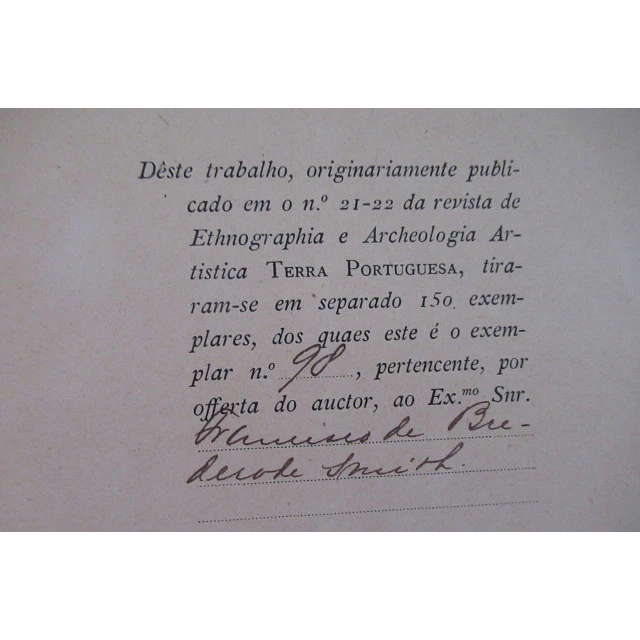 Dêste trabalho, originariamente publi-
cado em o n.º 21-22 da revista de
Ethnographia e Archeologia Ar-
tistica TERRA PORTUGUESA, tira-
ram-se em separado 150 exem-
plares, dos quaes este é o exem-
plar n.º 98, pertencente, por
offerta do auctor, ao Ex.mo Snr.
Francisco de Bre-
derode Smith.